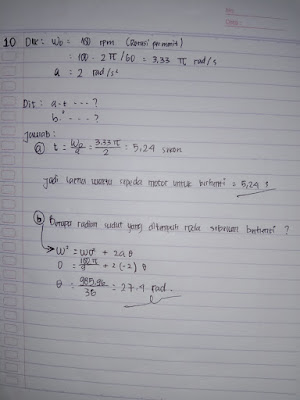 No.
Date.
10 Dik : ω0 = 100 rpm (rotasi per menit)
= 100 · 2π/60 = 3,33 π rad/s
a = 2 rad/s²
Dit : a. t . . . ?
b. θ . . . ?
Jawab :
(a) t = ω0/a = 3,33 π/2 = 5,24 sekon
Jadi lama waktu sepeda motor untuk berhenti = 5,24 s
(b) Berapa radian sudut yang ditempuh roda sebelum berhenti ?
ω² = ω0² + 2aθ
0 = 100 π/9 + 2 (-2) θ
θ = 985,96/36 = 27.4 rad.